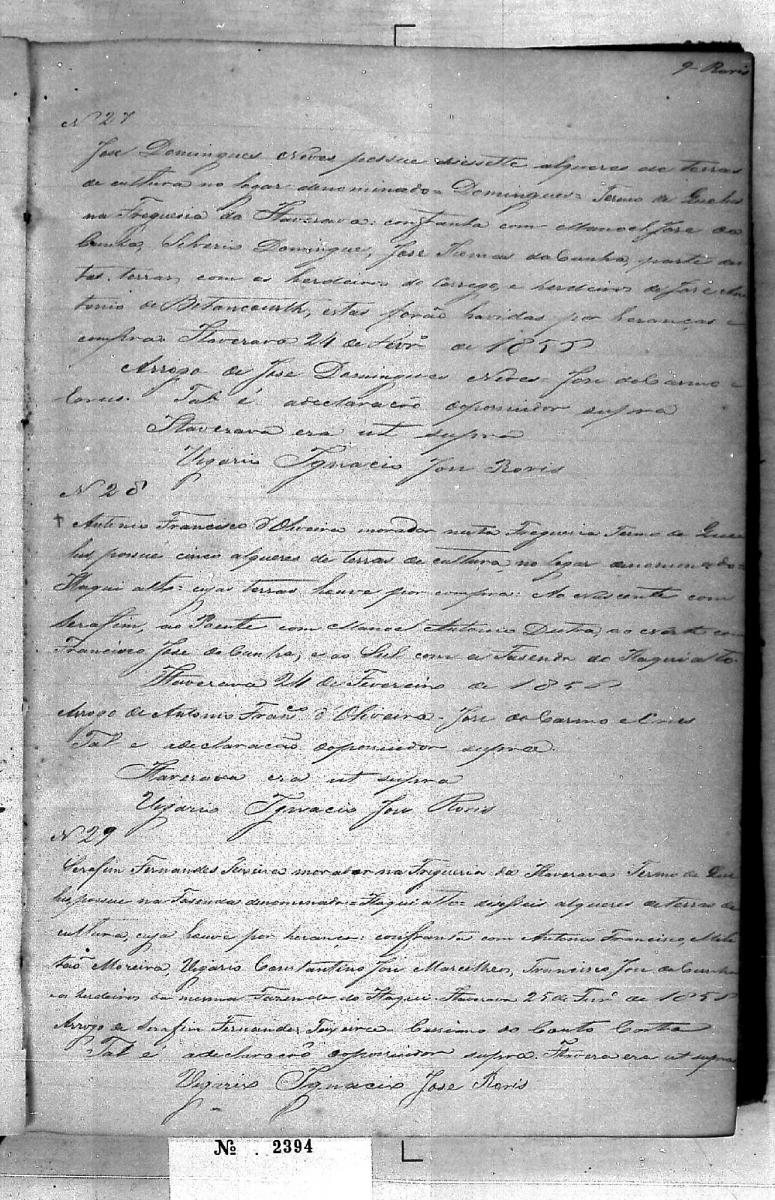 9 Roris
N 27
Jose Domingues Neves possue desessete alqueres de terras
de cultura no logar denominado = Domingues = Termo de Quelus
na Freguesia da Itaverava: confranta com Manoel Jose da
Cunha, Silverio Domingue, Jose Thomas da Cunha, parte des
tas terras, com os herdeiros do Corrego, e herdeiros de Jose An
tonio de Betancourth, estas forão havidas por heranças e
compra. Itaverava 24 de Fevr.o de 1856
Arrogo de Jose Domingues Neves = Jose do Carmo e
Tal é adeclaração dopossuidor supra
Itaverava era ut supra
Vigario Ignacio Jose Roris
N 28
Antonio Francisco d'Oliveira morador nesta Freguesia Termo de Que
lus possue cinco alqueres de terras de cultura, no logar denominado =
Itaqui alto = cujas terras houve por compra: Ao Nascente com
Serafim, ao Poente com Manoel Antonio Dutra, ao Norte com
Francisco Jose da Cunha, e ao Sul com a Fasenda do Itaqui alto.
Itaverava 24 de Fevereiro de 1856
Arrogo de Antonio Franc.co d'Oliveira - Jose do Carmo e
Tal é adeclaração dopossuidor supra.
Itaverava era ut supra
Vigario Ignacio Jose Roris
N 29
Serafim Fernandes Teixeira morador na Freguesia da Itaverava Termo de Que
lus, possue na Fasenda denominada = Itaqui alto = deseseis alqueres de terras de
cultura, cuja houve por herança: confranta com Antonio Francisco, Meli
tão Moreira, Vigario Constantino Jose Marcelhes, Francisco Jose da Cunha
e os herdeiros da mesma Fazenda do Itaqui. Itaverava 25 de Fevr.o de 1856
Arrogo de Serafim Fernandes Teixeira Cassiano do Couto
Tal é adeclaração dopossuidor supra. Itavera era ut supra
Vigario Ignacio Jose Roris
No 2394